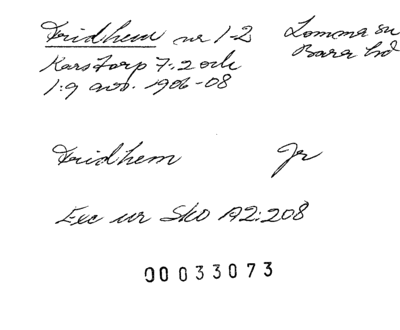 Fridhem nr 1-2 Lomma sn
Karstorp 7:2 och Bara hd
1:9 avs. 1906-08
Fridhem Jr
Exc ur Sko A2:208
00033073